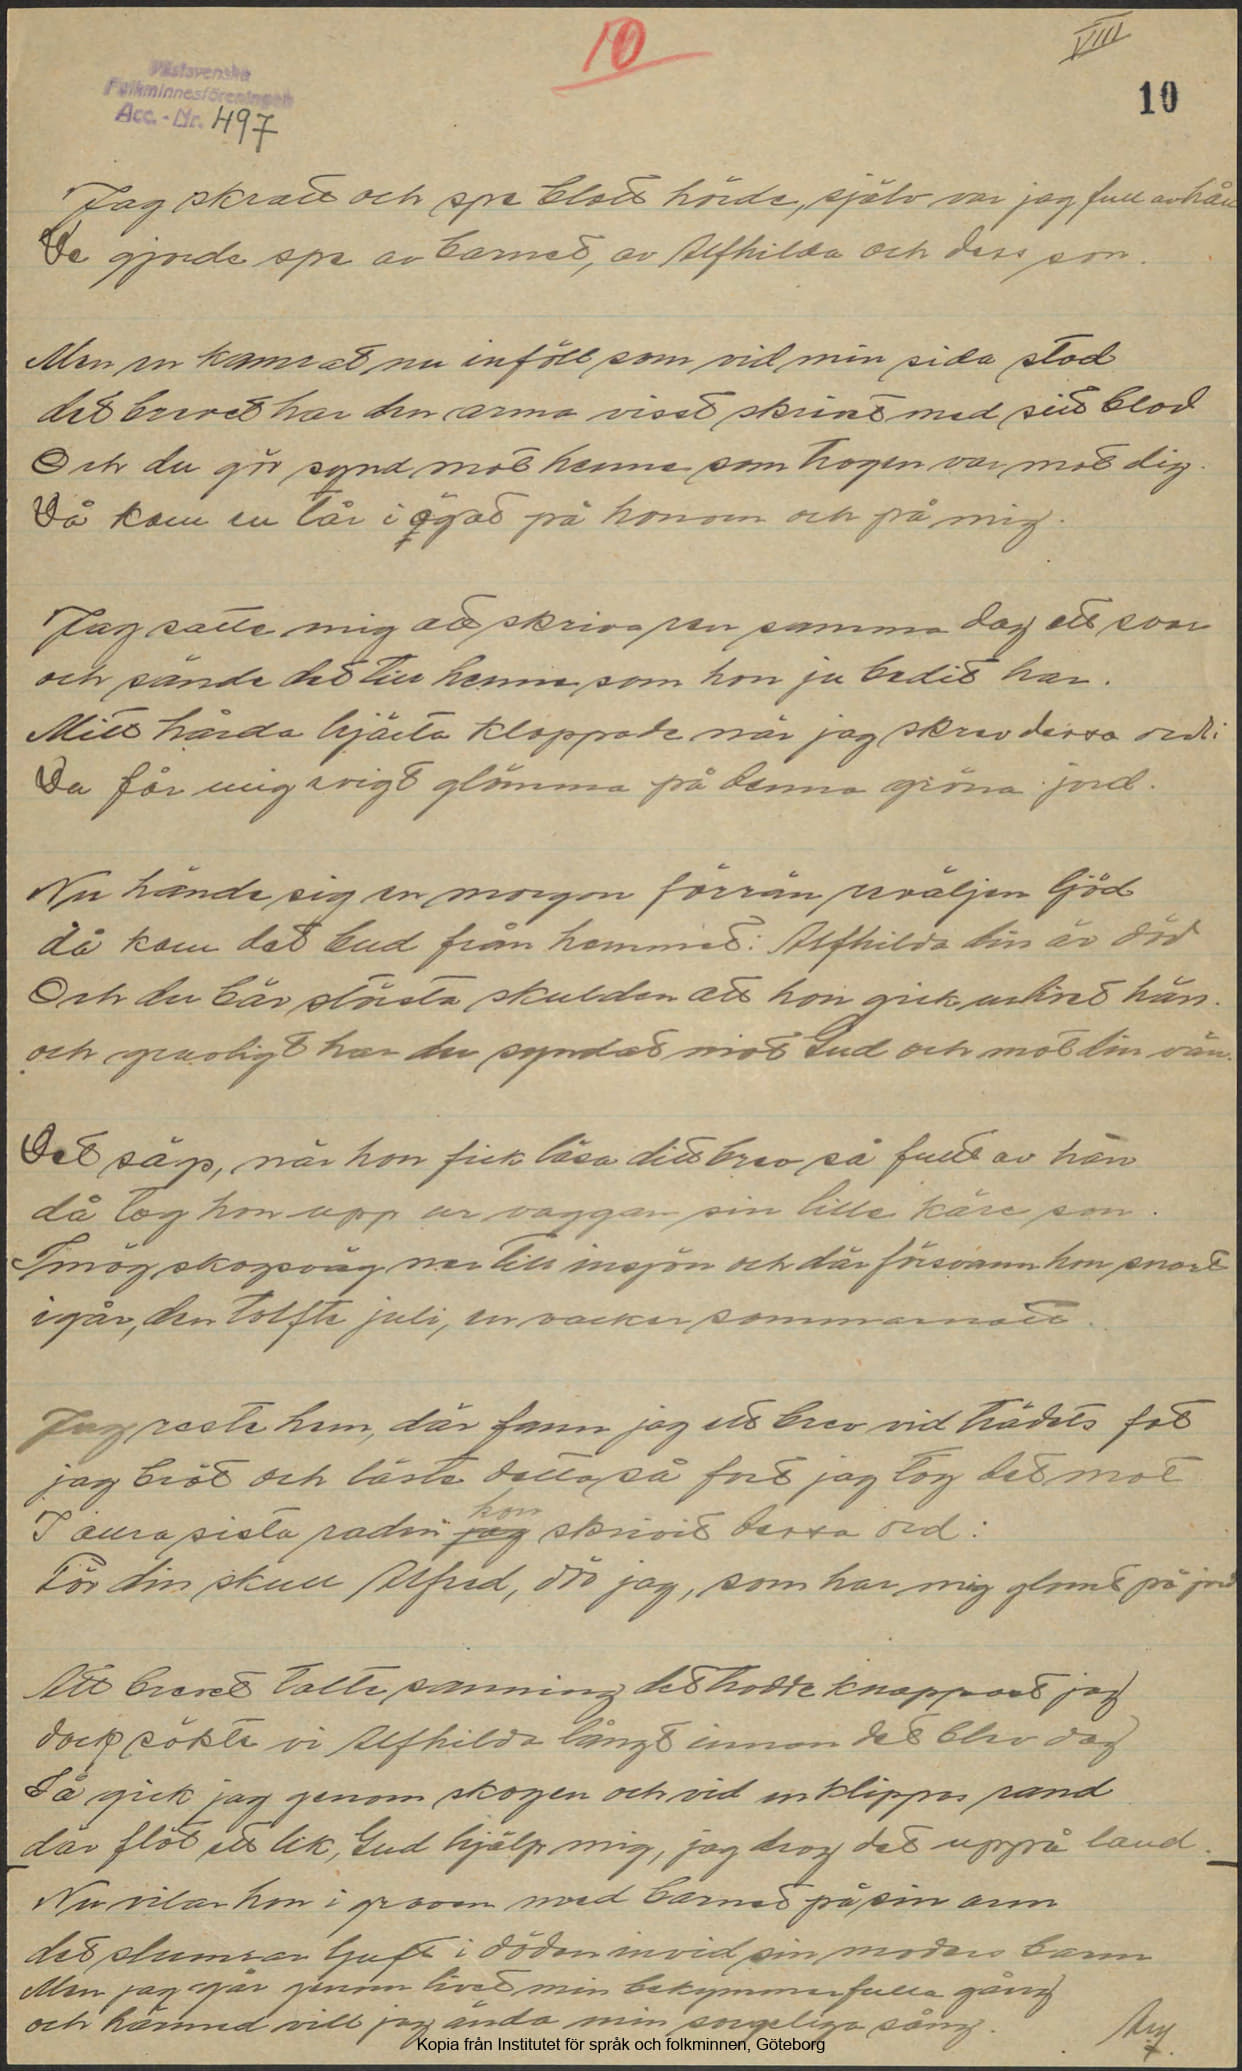 10
VIII
Västsvenska
Folkminnesföreningen
Acc. - Nr. 497
10
Jag skratt och spe blott hörde, själv var jag full av hån
De gjorde spe av barnet, av Alfhilda och dess son.
Men en kamrat nu inföll som vid min sida stod
det brevet har den arma visst skrivit med sitt blod
Och du gör synd mot henne som trogen var mot dig.
Då kom en tår i ögat på honom och på mig.
Jag satte mig att skriva ren samma dag ett svar
och sände det till henne som hon ju bedit har.
Mitt hårda hjärta kloppade när jag skrev dessa ord:
Du får mig evigt glömma på denna gröna jord.
Nu hände sig en morgon förrän reväljen ljöd
då kom det bud från hemmet: Alfhilda din är död
Och du bär största skulden att hon gick ur livet hän.
och gruvligt har du syndat mot Gud och mot din vän.
Det sägs, när hon fick läsa ditt brev så fullt av hån
då tog hon upp ur vaggan sin lille käre son.
I mög skogsväg ner till insjön och där försvann hon snart
igår, den tolfte juli, en vacker sommarnatt.
Jag reste hem, där fann jag ett brev vid trädets fot
jag bröt och läste detta så fort jag tog det mot
I allra sista raden jag hon skrivit dessa ord:
För din skull Alfred, dör jag, som har mig glömt på jord
Att brevet talte sanning det trodde knappast jag
dock sökte vi Alfhilda långt innan det blev dag
Så gick jag genom skogen och vid en klippas rand
där flöt ett lik, Gud hjälp mig, jag drog det uppå land.
Nu vilar hon i graven med barnet på sin arm
det slumrar ljuft i döden invid sin moders barm
Men jag går genom livet min bekymmerfulla gång
och härmed vill jag ända min sorgeliga sång.
Kopia från Institutet för språk och folkminnen, Göteborg